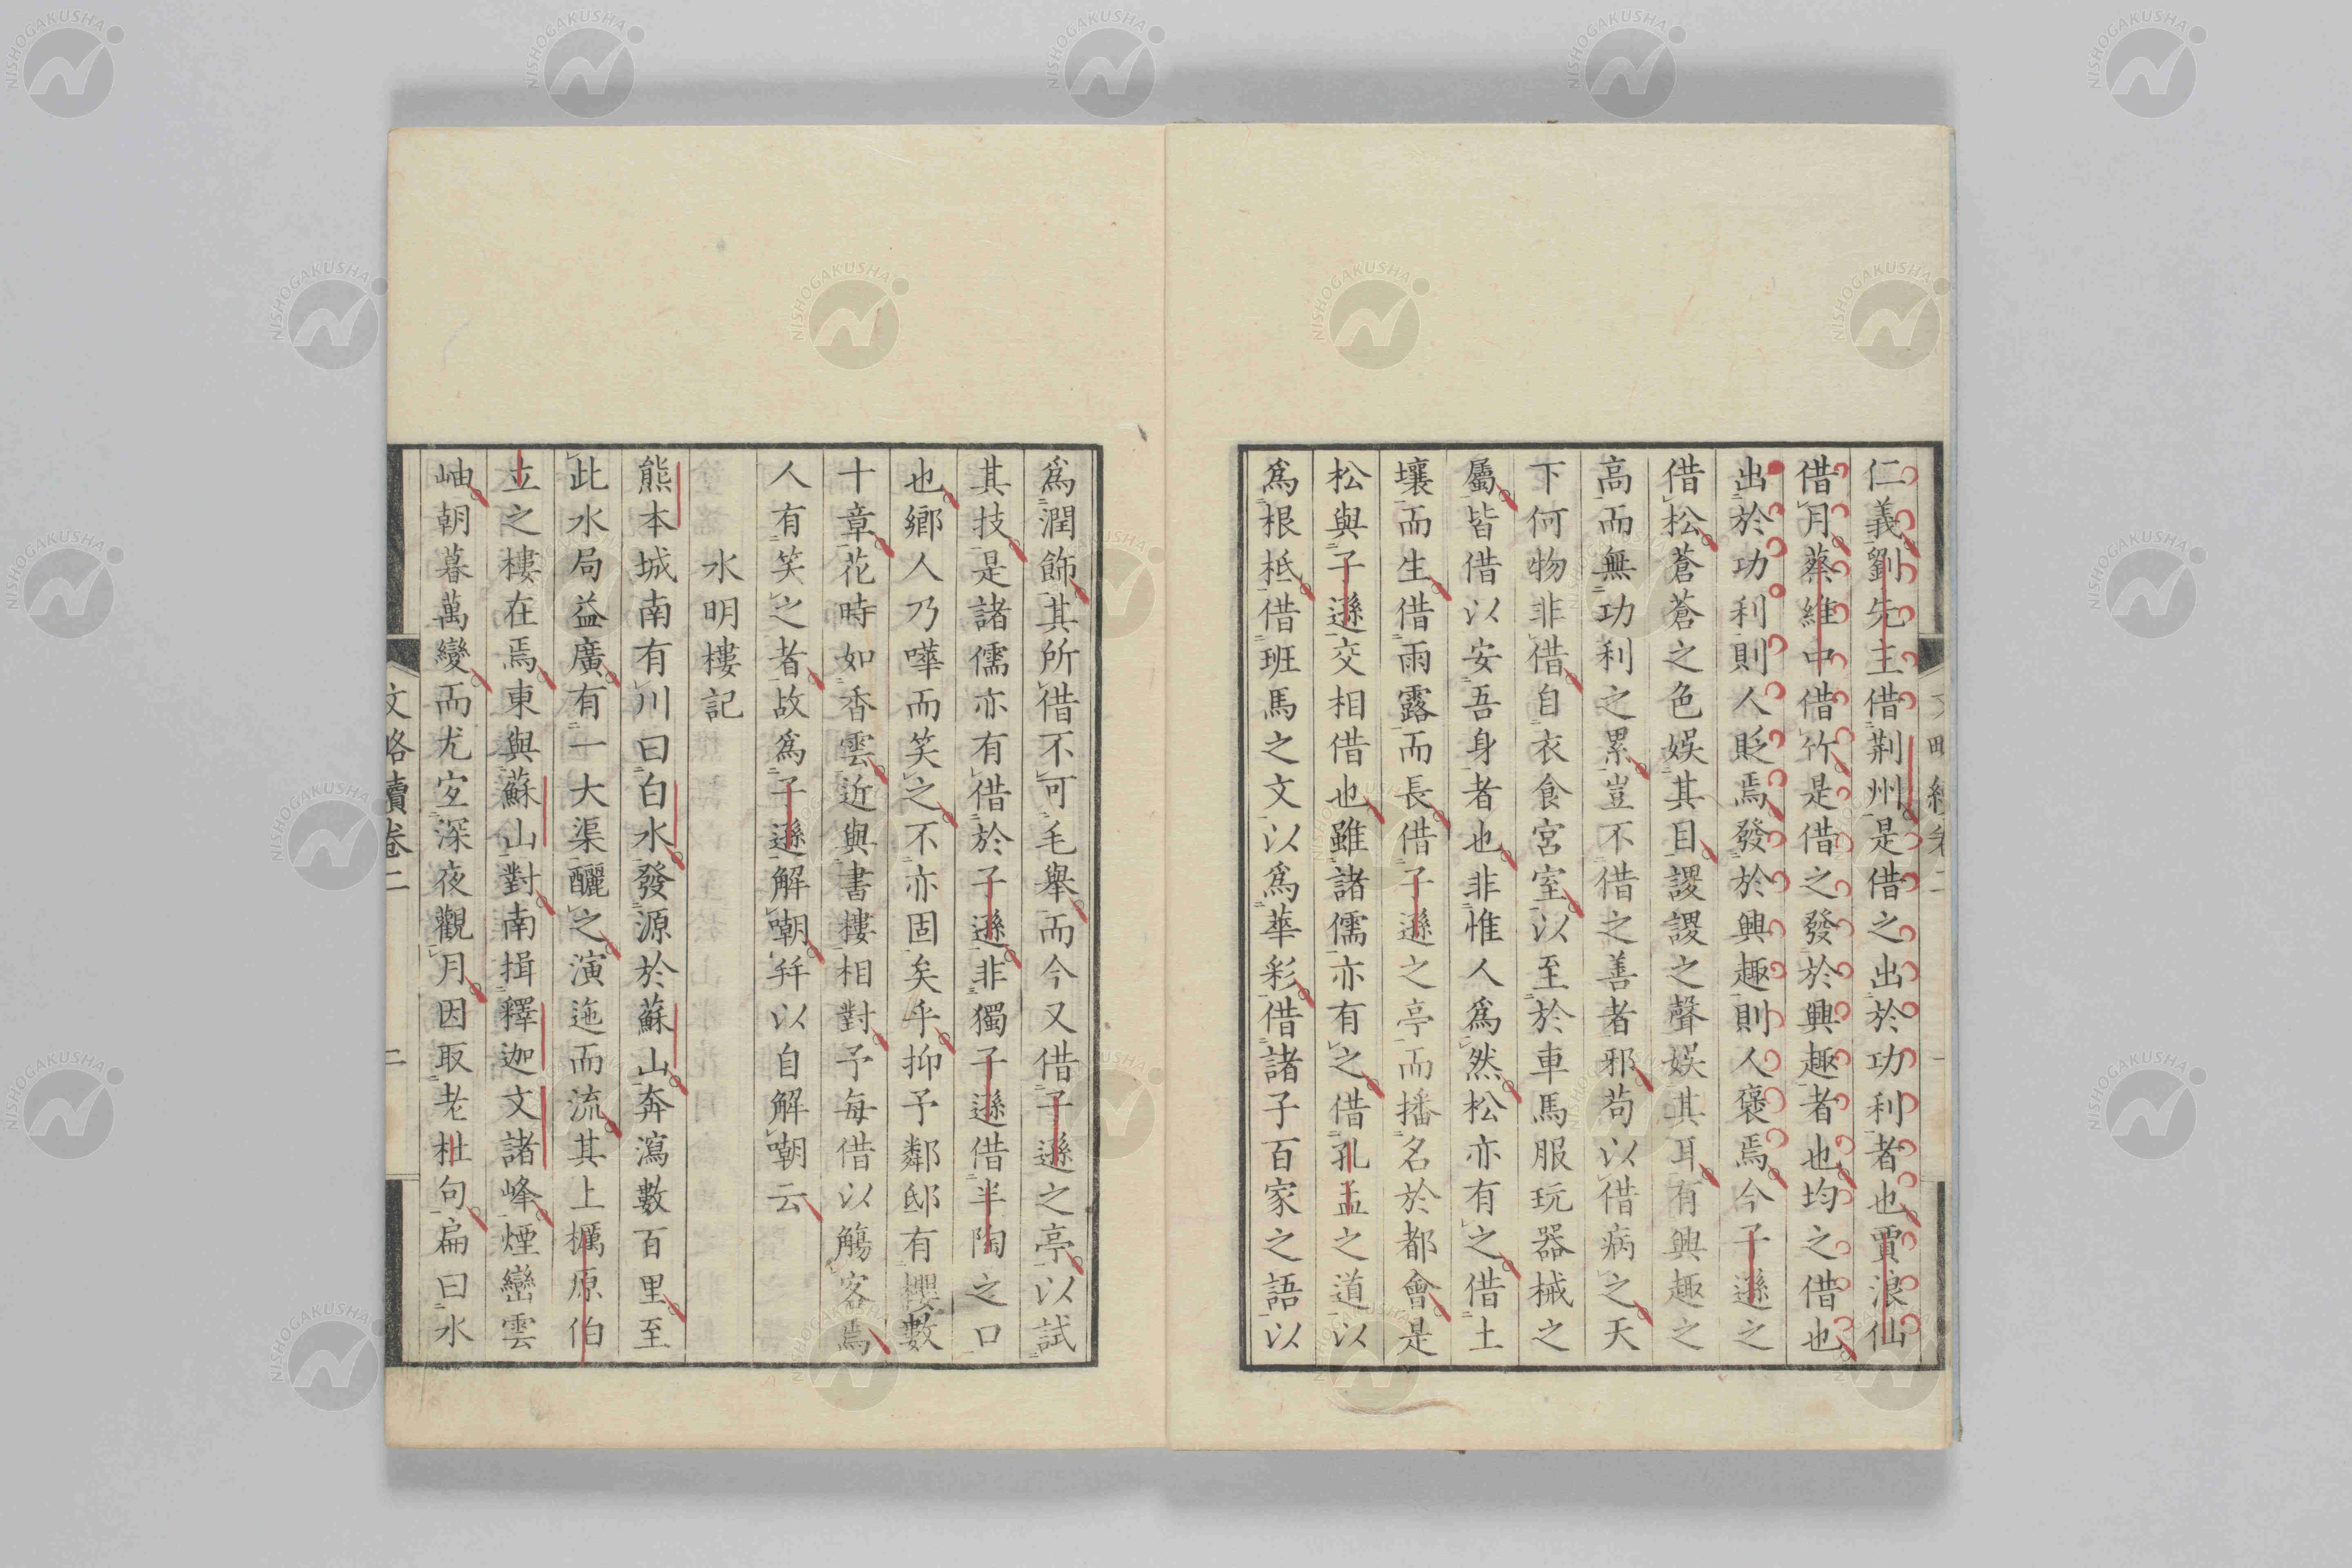 仁義劉先主借荆州是借之出於功利者也賈浪仙
借月蔡維中借竹是借之發於興趣者也均之借也
出於功利則人貶焉發於興趣則人褒焉今子遜之
借松蒼蒼之色娛其目謖謖之聲娛其耳有興趣之
高而無功利之累豈不借之善者邪苟以借病之天
下何物非借自衣食宮室以至於車馬服玩器械之
屬皆借以安吾身者也非惟人爲然松亦有之借土
壤而生借雨露而長借子遜之亭而播名於都會是
松與子遜交相借也雖諸儒亦有之借孔孟之道以
爲根柢借班馬之文以爲華彩借諸子百家之語以
爲潤飾其所借不可毛舉而今又借子遜之亭以試
其技是諸儒亦有借於子遜非獨子遜借半陶之口
也鄉人乃嘩而笑之不亦固矣乎抑予鄰邸有櫻數
十章花時如香雲近與書樓相對予每借以觴客焉
人有笑之者故爲子遜解嘲幷以自解嘲云
水明樓記
熊本城南有川曰白水發源於蘇山奔瀉數百里至
此水局益廣有一大渠釃之演迤而流其上櫔原伯
立之樓在焉東與蘇山對南揖釋迦文諸峰煙巒雲
岫朝暮萬變而尤宜深夜觀月因取老杜句扁曰水
文略續卷二
二
NISHOGAKUSHA